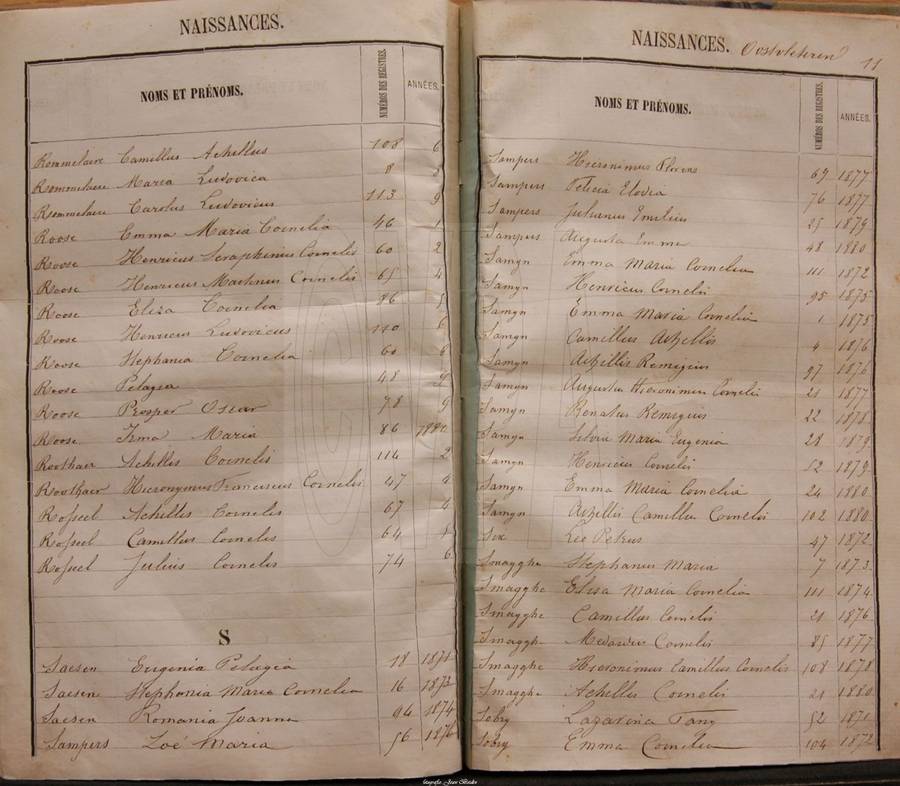 NAISSANCES.
NOMS ET PRÉNOMS. NUMÉROS DES REGISTRES. ANNÉES.
Rommelaere Camillus Achillus 108 6
Rommelaere Maria Ludovica 8
Rommelaere Carolus Ludovicus 113 9
Roose Emma Maria Cornelia 46 1
Roose Henricus Seraphinus Cornelis 60 2
Roose Henricus Martinus Cornelis 65 4
Roose Eliza Cornelia 86 5
Roose Henricus Ludovicus 110 6
Roose Stephania Cornelia 60 8
Roose Pelagia 48 9
Roose Prosper Oscar 78 9
Roose Irma Maria 86
Roothaer Achilles Cornelis 114 2
Roothaer Hieronymus Franciscus Cornelis 47 4
Rosseel Achilles Cornelis 67 4
Rosseel Camillus Cornelis 64
Rosseel Julius Cornelis 74 6
S
Saesen Eugenia Pelagia 18 1871
Saesen Stephania Maria Cornelia 16 1873
Saesen Romania Joanna 94 1874
Sampers Zoé Maria 56 1876
NAISSANCES. Oostvleteren 11
NOMS ET PRÉNOMS. NUMÉROS DES REGISTRES. ANNÉES.
Sampers Hieronimus Florens 69 1877
Sampers Felicia Elodia 76 1877
Sampers Julianus Emilius 25 1879
Sampers Augusta Emma 48 1880
Samyn Emma Maria Cornelia 111 1872
Samyn Henricus Cornelis 95 1875
Samyn Emma Maria Cornelia 1 1875
Samyn Camillus Achillis 4 1876
Samyn Achillis Remigius 97 1876
Samyn Augustus Hieronimus Cornelis 21 1877
Samyn Renatus Remigius 22 1878
Samyn Silvia Maria Eugenia 28 1879
Samyn Henricus Cornelis 52 1879
Samyn Emma Maria Cornelia 24 1880
Samyn Achillis Camillus Cornelis 102 1880
Six Leo Petrus 47 1872
Smagghe Stephanus Maria 7 1873
Smagghe Elisa Maria Cornelia 111 1874
Smagghe Camillus Cornelis 21 1876
Smagghe Medardus Cornelis 85 1877
Smagghe Hieronimus Camillus Cornelis 108 1878
Smagghe Achilles Cornelis 21 1880
Sobry Lazarina Fany 52 1871
Sobry Emma Cornelia 104 1872